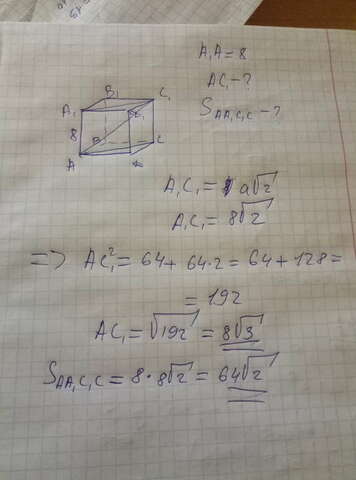 A₁A = 8
AC₁ - ?
S_AA₁C₁C - ?
B₁ C₁
A₁
8 B C
A
A₁C₁ = a√2
A₁C₁ = 8√2
=> AC₁² = 64 + 64·2 = 64 + 128 =
= 192
AC₁ = √192 = 8√3
S_AA₁C₁C = 8 · 8√2 = 64√2